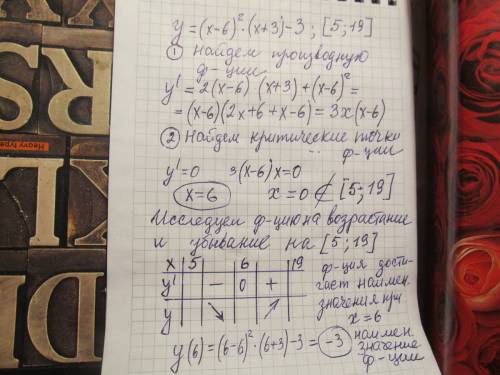 y = (x-6)² · (x+3) - 3 ; [5; 19]
① Найдем производную
ф-ции
y' = 2(x-6) (x+3) + (x-6)² =
= (x-6)(2x+6+x-6) = 3x(x-6)
② Найдем критические точки
ф-ции
y' = 0 3(x-6)x=0
x=6 x = 0 ⊄ [5; 19]
Исследуем ф-цию на возрастание
и убывание на [5; 19]
x | 5 | | 6 | | 19
y' | | − | 0 | + |
y | | ↘ | | ↗ |
ф-ция дости-
гает наимен.
значения при
x = 6
y(6) = (6-6)² · (6+3) - 3 = -3 наимен.
значение
ф-ции
Heavy type